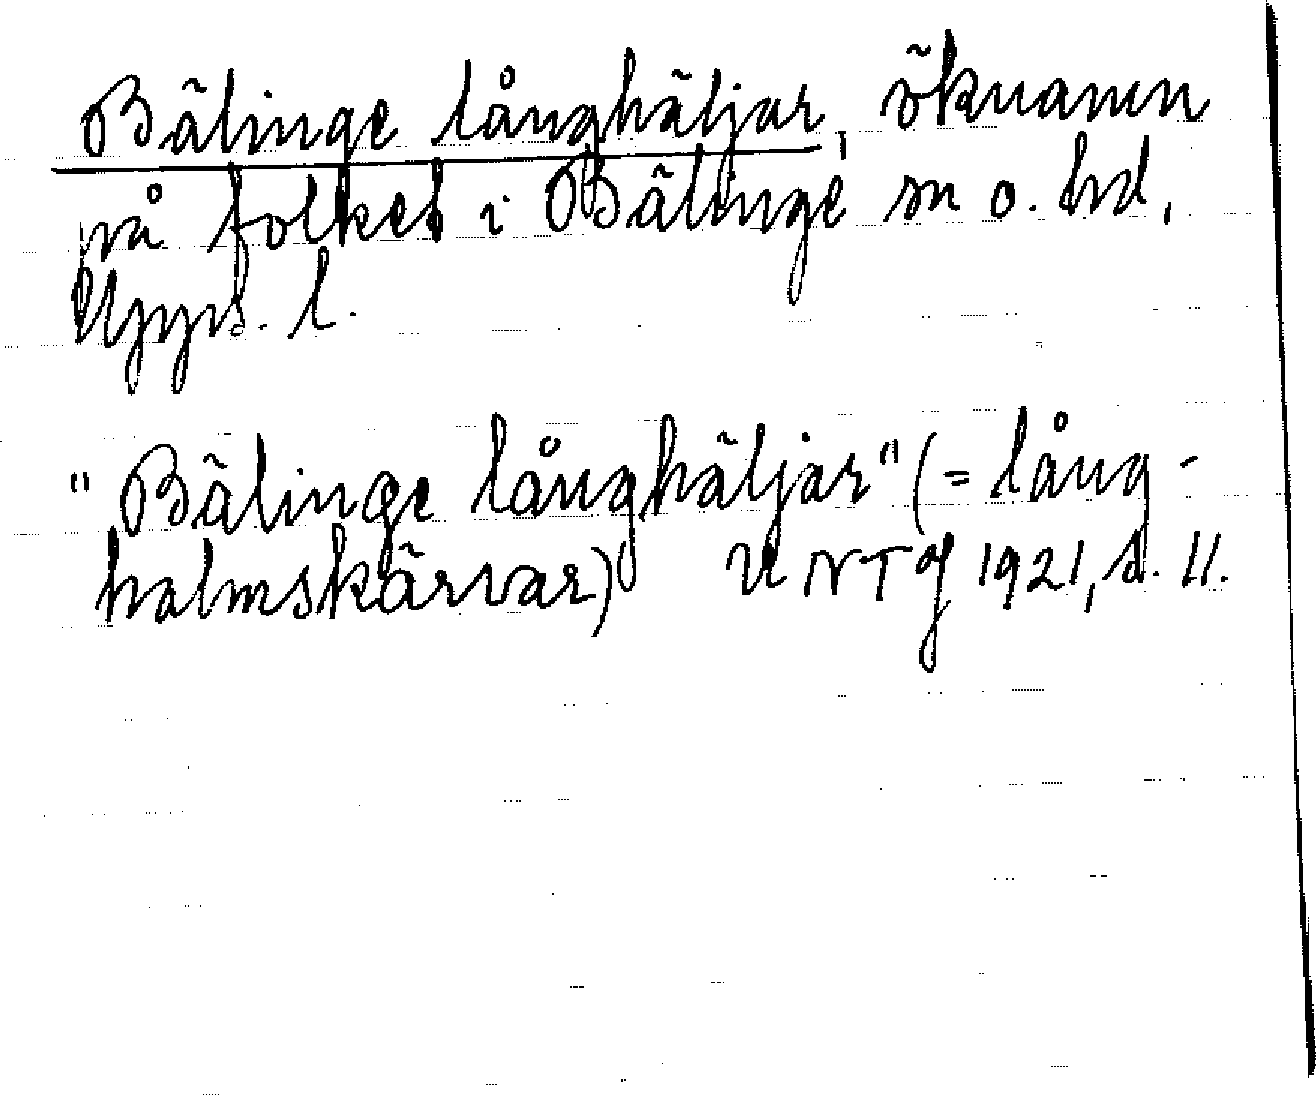 Bälinge långhäljar, öknamn
på folket i Bälinge sn o. hd,
Upps. l.
"Bälinge långhäljar" (= lång-
halmskärvar) UNTg 1921, s. 11.